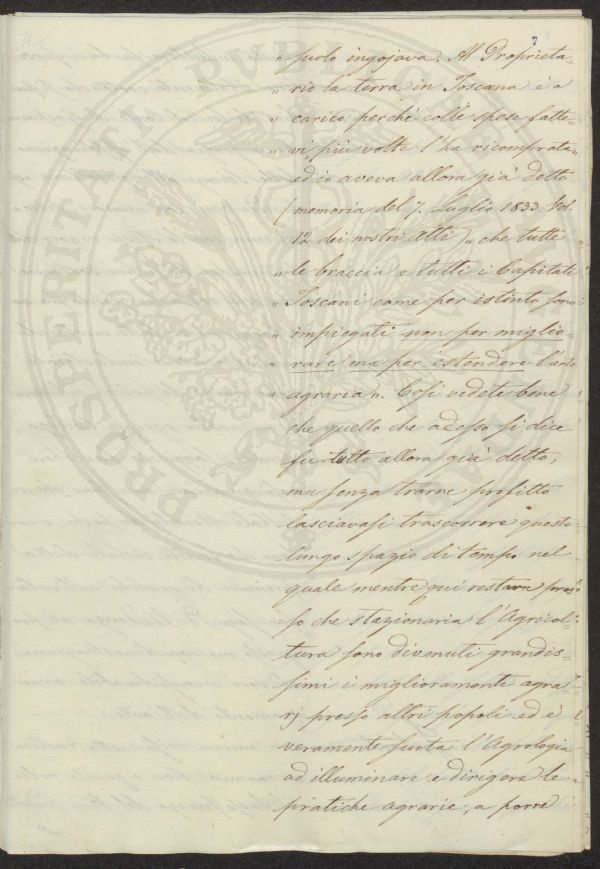 7
„ suolo ingojava. Al Proprieta=
„ rio la terra in Toscana è a
„ carico perché colle spese fatte=
„ vi più volte l'ha ricomprata „
ed io aveva allora già detto
(memoria del 7. Luglio 1833 Vol.
12 dei nostri Atti) „ che tutte
„ le braccia e tutti i Capitali
„ Toscani come per istinto sono
„ impiegati non per miglio=
„ rare ma per estendere l'arte
„ agraria „. Così vedete bene
che quello che adesso si dice
fu tutto allora già detto,
ma senza trarne profitto
lasciavasi trascorrere questo
lungo spazio di tempo nel
quale mentre qui restava pres=
so che stazionaria l'Agricol=
tura sono divenuti grandis=
simi i miglioramenti agra=
rj presso altri popoli ed è
veramente surta l'Agrologia
ad illuminare e dirigere le
pratiche agrarie, a porre
PROSPERITATI PUBLICAE